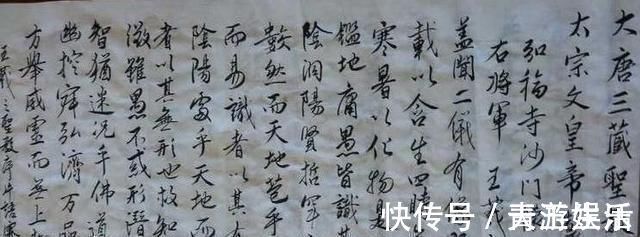 大唐三藏聖
太宗文皇帝
弘福寺沙門
右將軍王羲
蓋聞二儀有
載以含生四時
寒暑以化物是
鑑地庸愚皆識其
陰洞陽賢哲罕
數然而天地苞乎
而易識者以其有
陰陽處乎天地而
者以其無形也故知
徵雖愚不惑形潛
智猶迷況乎佛道
幽控寂弘濟万品
方舉威靈而無上
王羲之聖教序
快传号 / 青游娱乐